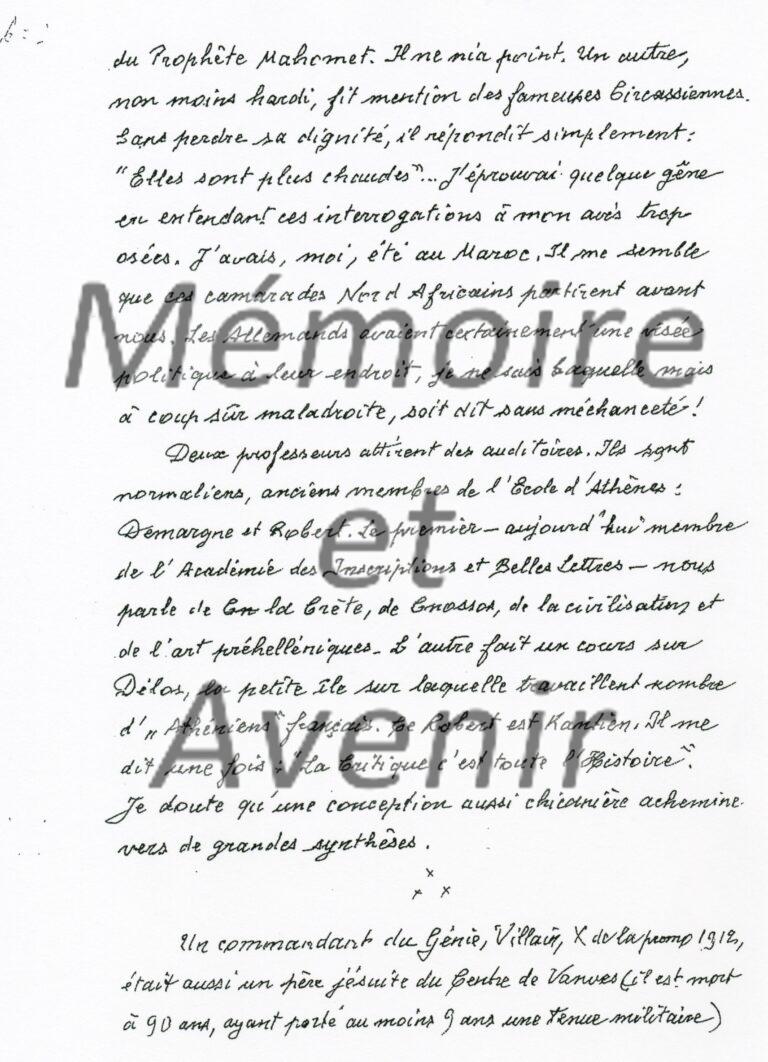 du Prophête Mahomet. Il ne nia point. Un autre,
non moins hardi, fit mention des fameuses Circassiennes.
Sans perdre sa dignité, il répondit simplement :
"Elles sont plus chaudes"... J'éprouvai quelque gêne
en entendant ces interrogations à mon avis trop
osées. J'avais, moi, été au Maroc. Il me semble
que ces camarades Nord Africains partirent avant
nous. Les Allemands avaient certainement une visée
politique à leur endroit, je ne sais laquelle mais
à coup sûr maladroite, soit dit sans méchanceté !
Deux professeurs attirent des auditoires. Ils sont
normaliens, anciens membres de l'Ecole d'Athènes :
Demargne et Robert. Le premier – aujourd'hui membre
de l'Académie des Inscriptions et Belles Lettres – nous
parle de la Crète, de Cnossos, de la civilisation et
de l'art préhelléniques. L'autre fait un cours sur
Délos, la petite île sur laquelle travaillent nombre
d'"Athéniens" français. Ce Robert est Kantien. Il me
dit une fois : "La Critique c'est toute l'Histoire".
Je doute qu'une conception aussi chicanière achemine
vers de grandes synthèses.
x
x x
Un commandant du Génie, Villain, X de la promo 1912,
était aussi un père jésuite du Centre de Vanves (il est mort
à 90 ans, ayant porté au moins 9 ans une tenue militaire)
Mémoire
et
Avenir